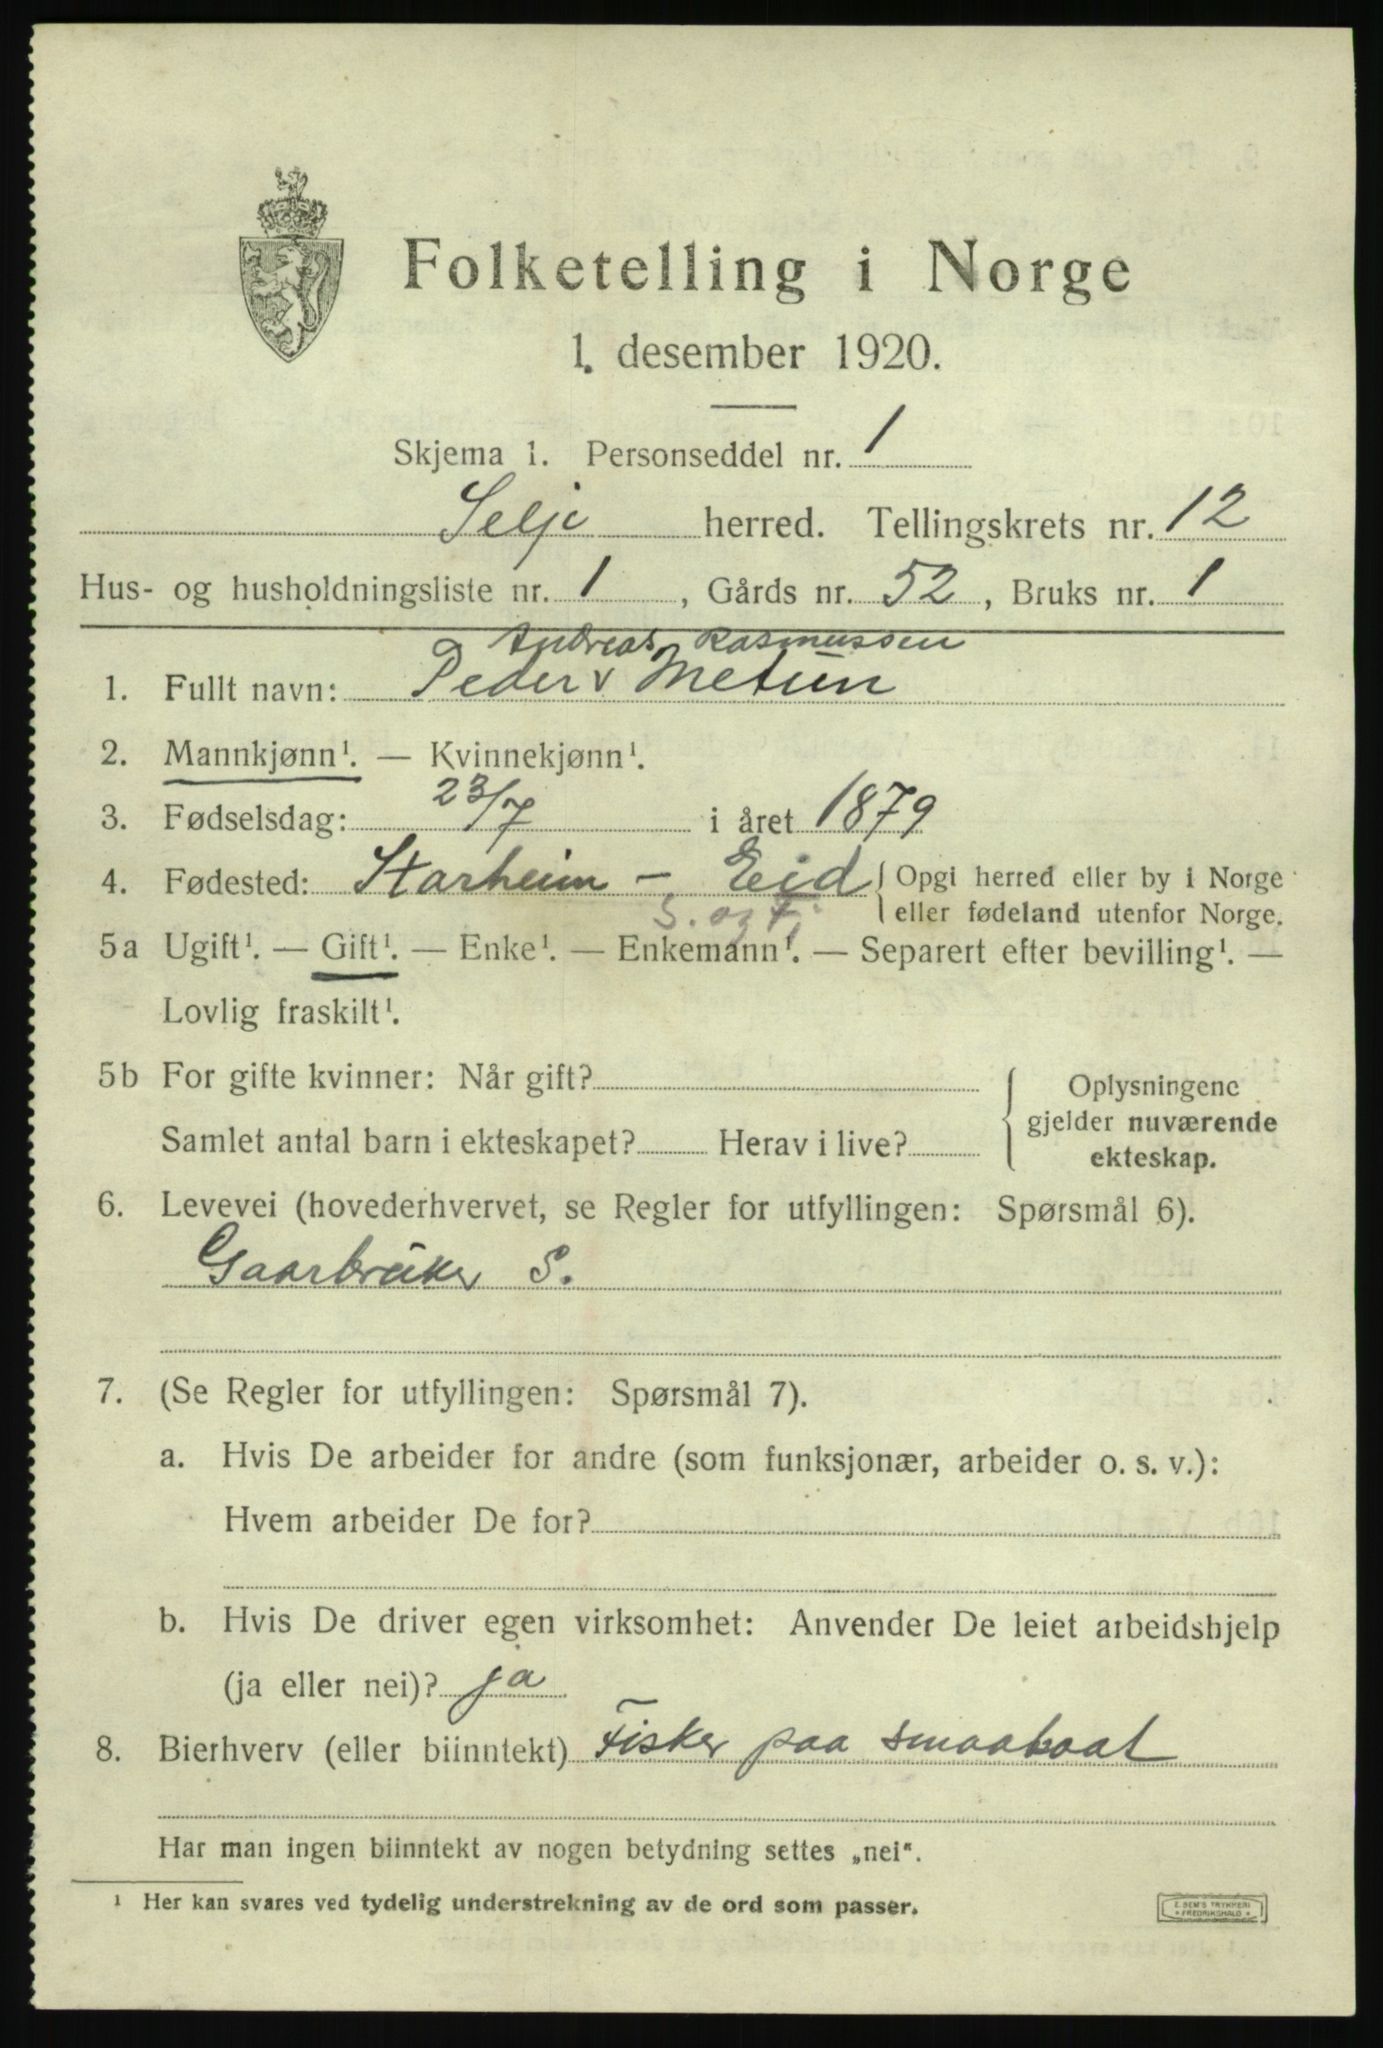 Folketelling i Norge
1. desember 1920.
Skjema 1. Personseddel nr. 1
Selje herred. Tellingskrets nr. 12
Hus- og husholdningsliste nr. 1, Gårds nr. 52, Bruks nr. 1
Andreas Rasmussen
1. Fullt navn: Peder v Metun
2. Mannkjønn¹. — Kvinnekjønn¹.
3. Fødselsdag: 23/7 i året 1879
4. Fødested: Starheim - Eid { Opgi herred eller by i Norge
eller fødeland utenfor Norge.
S. og Fj.
5a Ugift¹. — Gift¹. — Enke¹. — Enkemann¹. — Separert efter bevilling¹. —
Lovlig fraskilt¹.
5b For gifte kvinner: Når gift?
Samlet antal barn i ekteskapet? Herav i live?
{ Oplysningene
gjelder nuværende
ekteskap.
6. Levevei (hovederhvervet, se Regler for utfyllingen: Spørsmål 6).
Gaarbruker S.
7. (Se Regler for utfyllingen: Spørsmål 7).
a. Hvis De arbeider for andre (som funksjonær, arbeider o. s. v.):
Hvem arbeider De for?
b. Hvis De driver egen virksomhet: Anvender De leiet arbeidshjelp
(ja eller nei)? ja
8. Bierhverv (eller biinntekt) Fisker paa smaabaat
Har man ingen biinntekt av nogen betydning settes „nei“.
¹ Her kan svares ved tydelig understrekning av de ord som passer.
E. SEM'S TRYKKERI
* FREDRIKSHALD *